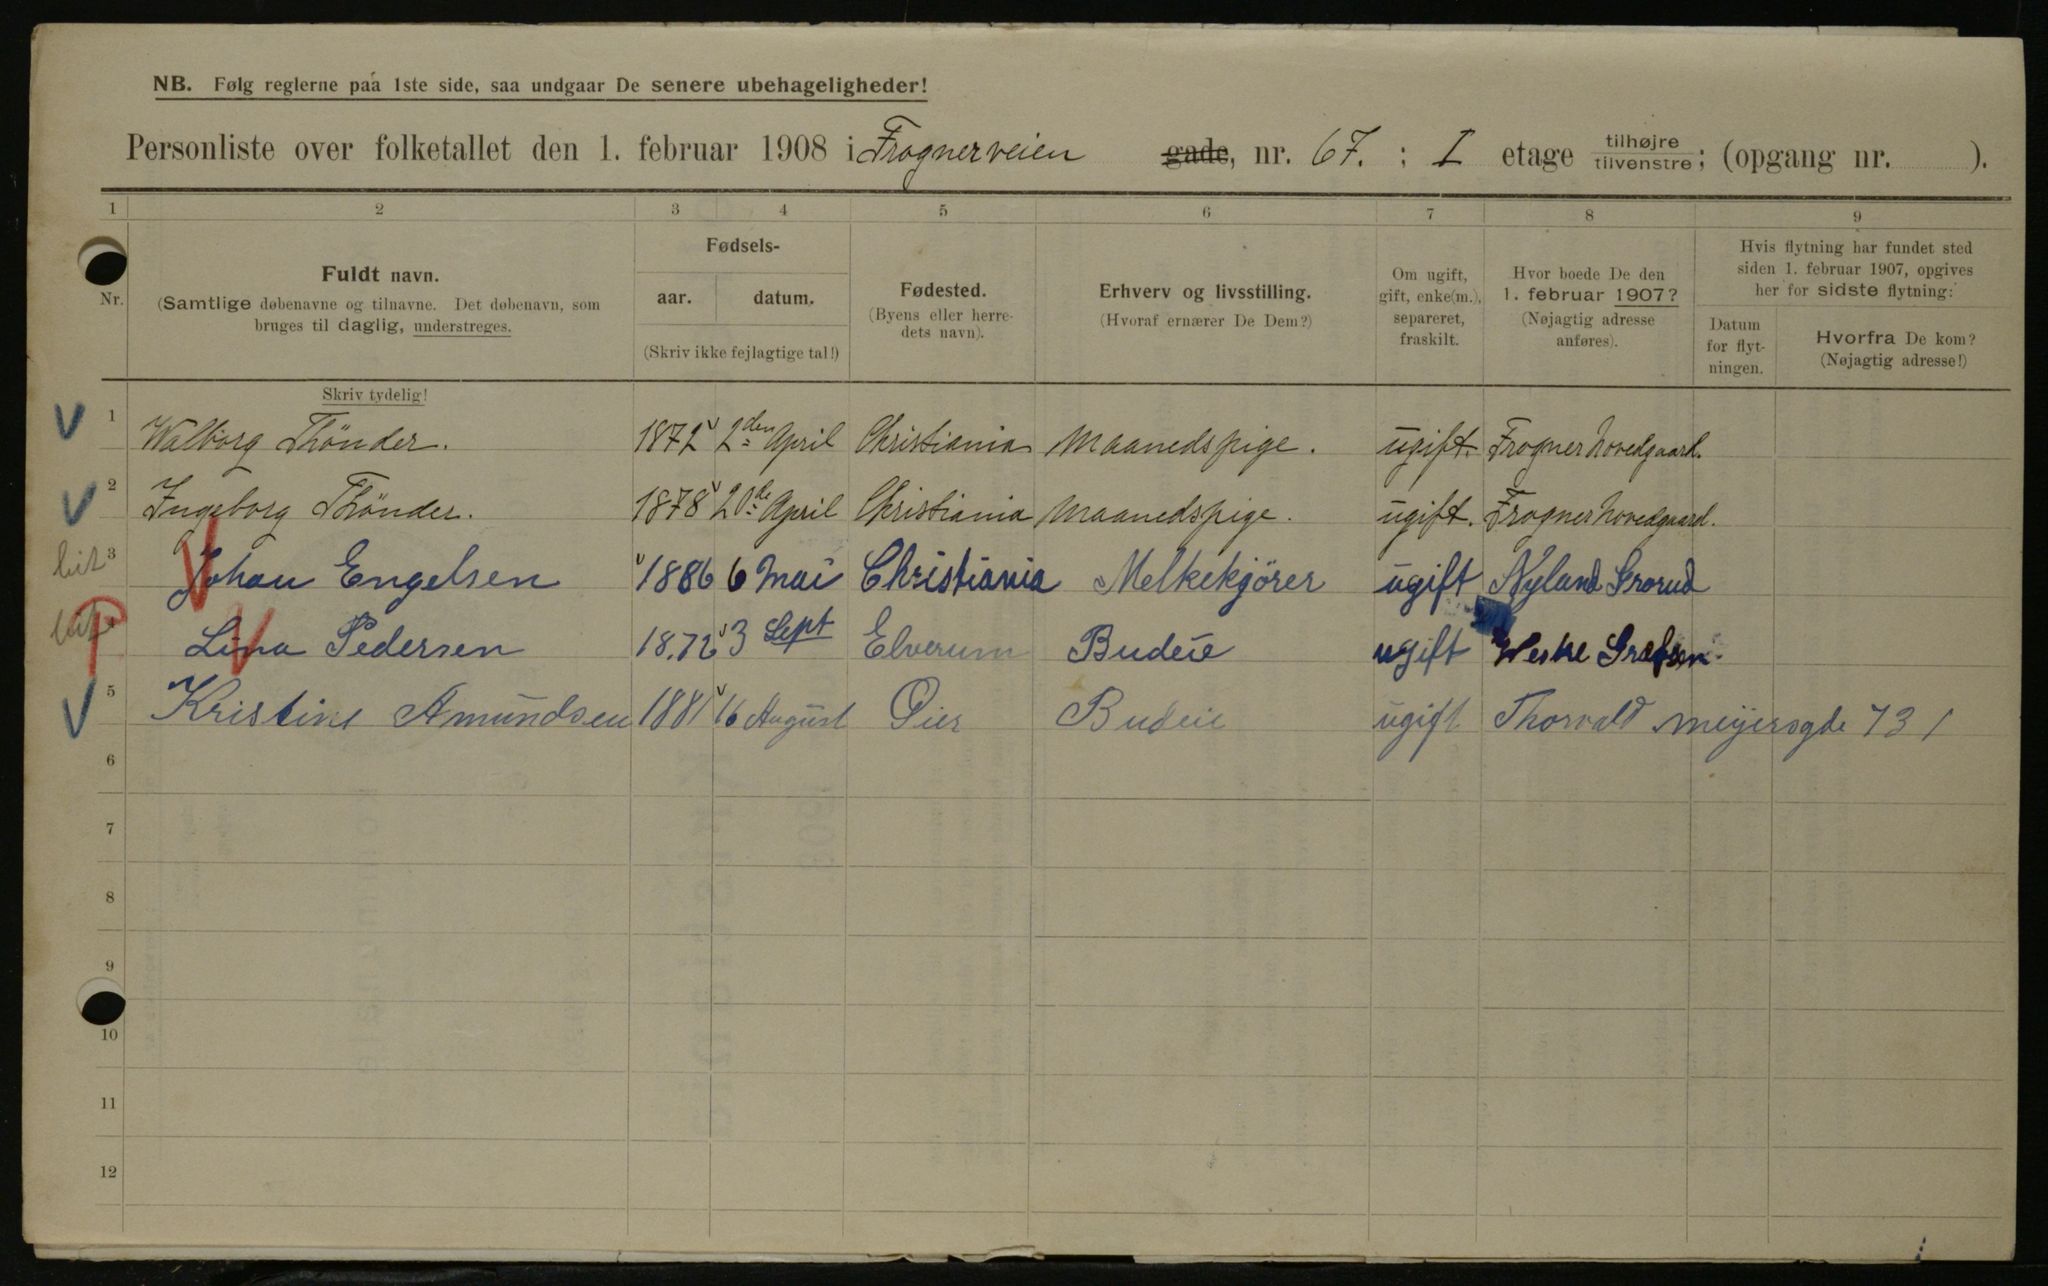 NB. Følg reglerne paa 1ste side, saa undgaar De senere ubehageligheder!
Personliste over folketallet den 1. februar 1908 i Frognerveien gade, nr. 67. ; I etage tilhøjre tilvenstre; (opgang nr. ).
1 2 3 4 5 6 7 8 9
Nr.
Fuldt navn.
(Samtlige døbenavne og tilnavne. Det døbenavn, som
bruges til daglig, understreges.
Fødsels-
aar. datum.
(Skriv ikke fejlagtige tal!)
Fødested.
(Byens eller herre-
dets navn).
Erhverv og livsstilling.
(Hvoraf ernærer De Dem?)
Om ugift,
gift, enke(m.),
separeret,
fraskilt.
Hvor boede De den
1. februar 1907?
(Nøjagtig adresse
anføres).
Hvis flytning har fundet sted
siden 1. februar 1907, opgives
her for sidste flytning:
Datum
for flyt-
ningen.
Hvorfra De kom?
(Nøjagtig adresse!)
Skriv tydelig!
1 Walborg Thönder. 1872 2den April Christiania Maanedspige. ugift. Frogner hovedgaard.
2 Ingeborg Thönder. 1878 20de April Christiania Maanedspige. ugift. Frogner hovedgaard.
3 Johan Engelsen 1886 6 Mai Christiania Melkekjörer ugift Nyland Grorud
Lina Pedersen 18.72 3 Sept Elverum Budeie ugift
5 Kristine Amundsen 1881 16 August Öier Budeie ugift Thorvald Meijersgde 73 I
6
7
8
9
10
11
12